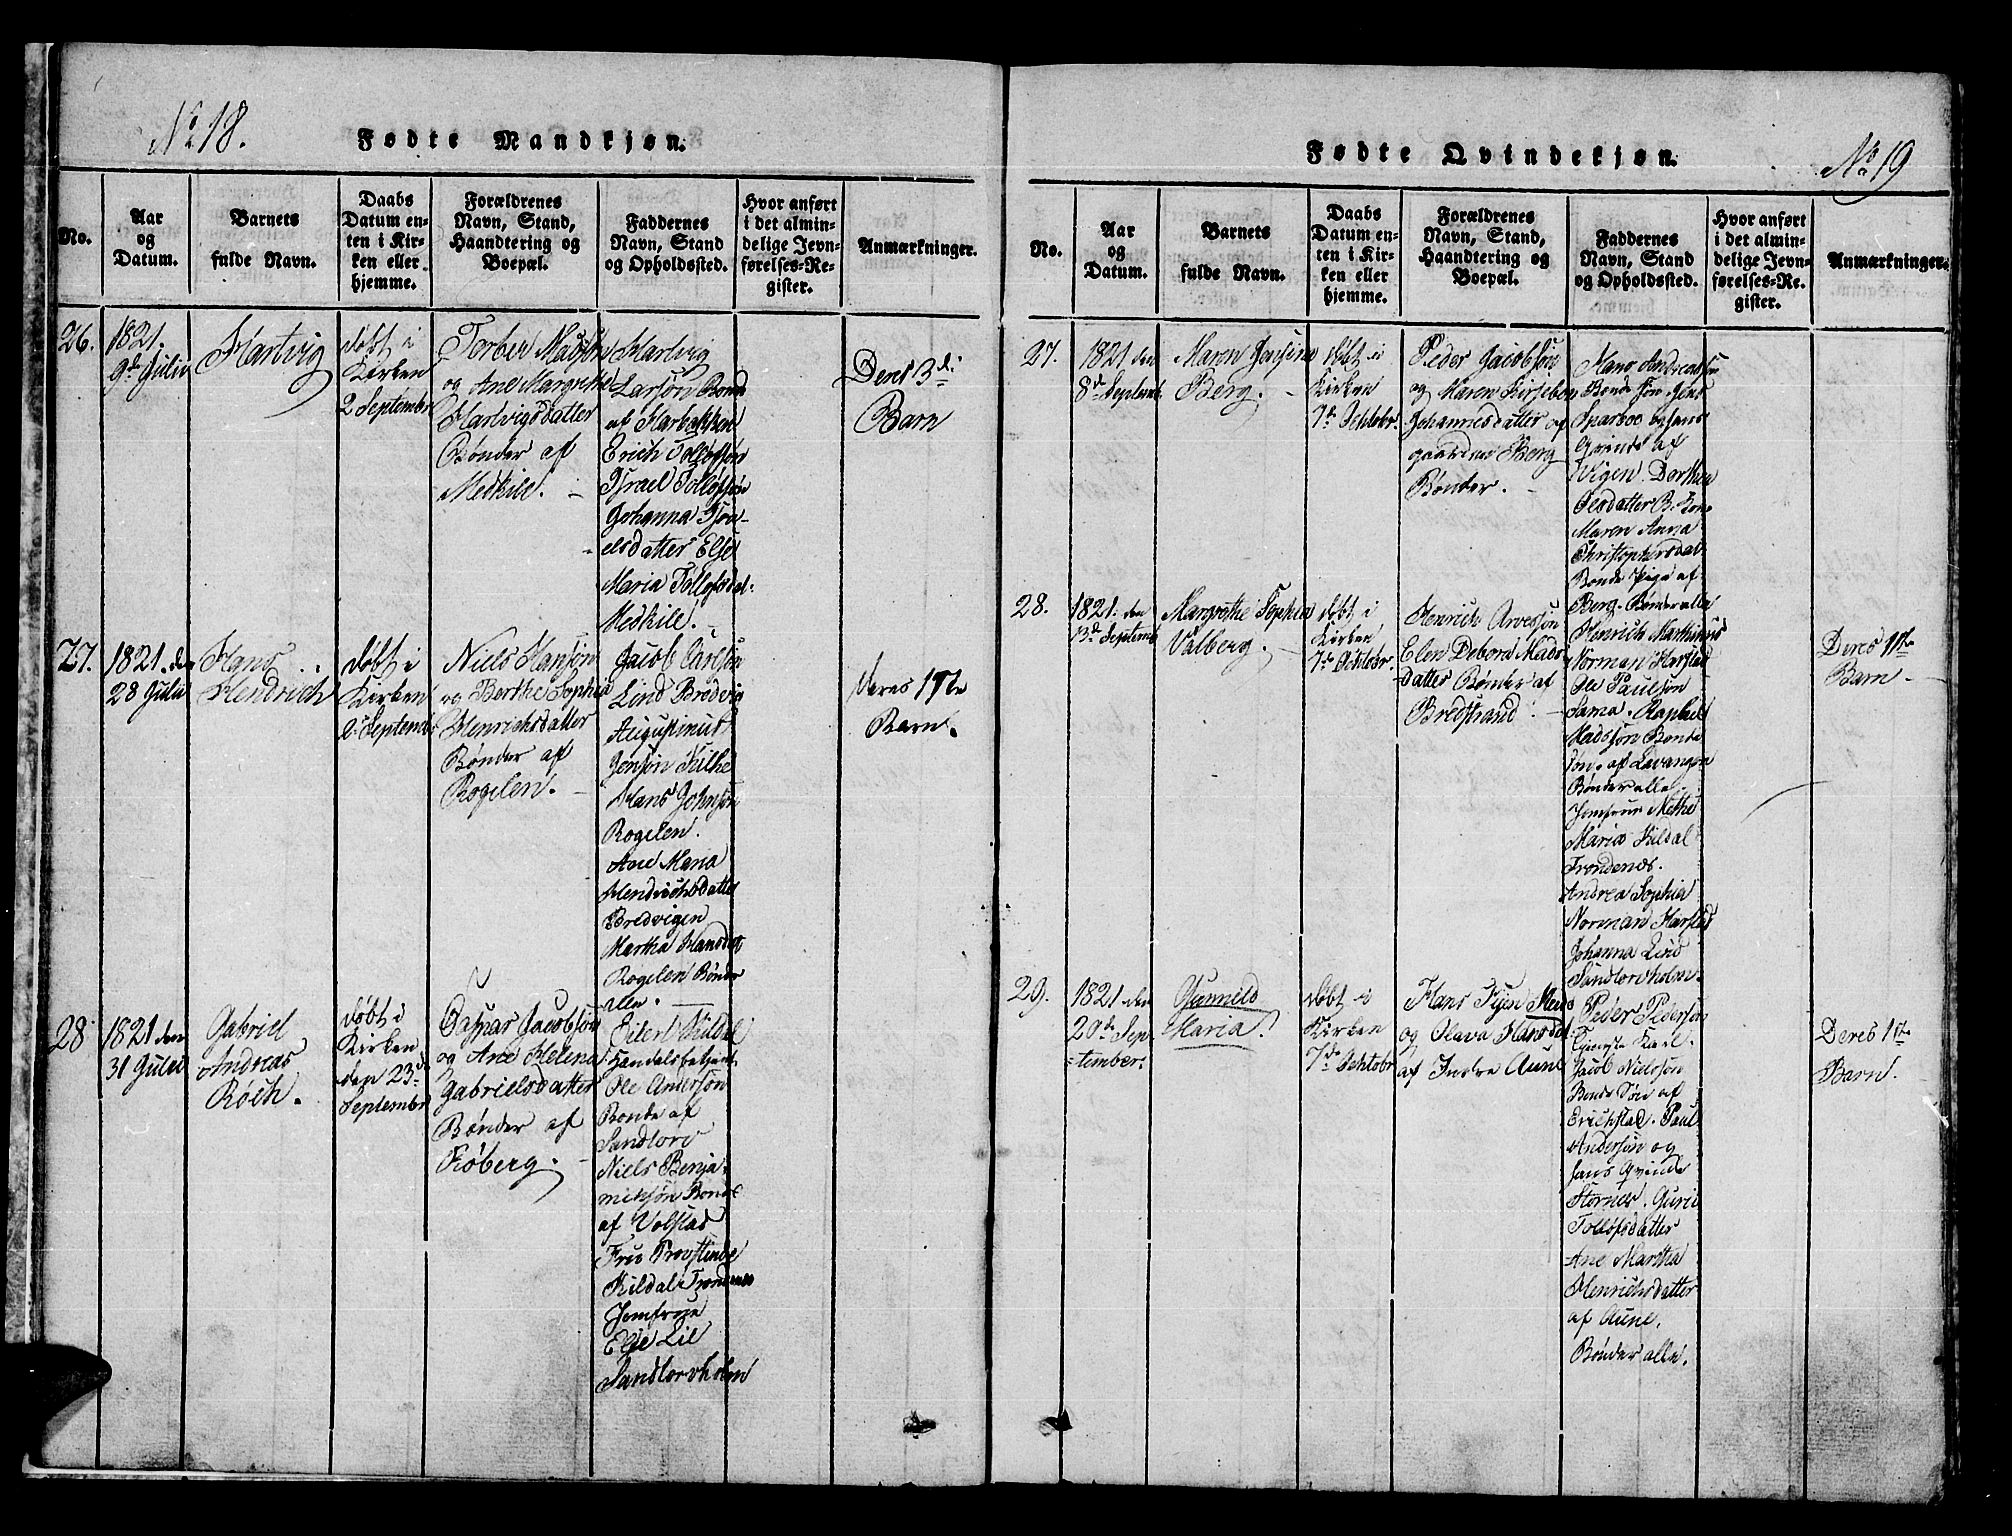 No 18.
Fødte Mandkjøn.
No.
Aar
og
Datum.
Barnets
fulde Navn.
Daabs
Datum en-
ten i Kir-
ken eller
hjemme.
Forældrenes
Navn, Stand,
Haandtering og
Boepæl.
Faddernes
Navn, Stand
og Opholdssted.
Hvor anført
i det almin-
delige Jevn-
førelses-Re-
gister.
Anmærkninger.
26.
1821.
9de Julii
Hartvig
døbt i
Kirken
2 Septembr
Torber Madsøn
og Ane Margrethe
Hartvigsdatter
Bønder af
Medkile.
Hartvig
Larsøn Bond
af Harbakken
Erich Tolløfsøn
Israel Tolløfsøn
Johanna Ison-
elsdatter Else
Maria Tollofsdat.
Medkile.
Deres 3di
Barn
27.
1821. den
28 Julii
Hans
Hendrich
døbt i
Kirken
2. Septembr
Niels Hansøn
og Berthe Sophia
Henrichsdatter
Bønder af
Rogelen.
Jacob Carlsøn
Lind Bredvig
Augustinus
Jensøn Kilhe
Hans Johnsøn
Rogelen.
Ane Maria
Hendrichsdatter
Bredvigen
Martha Hansdat
Rogelen Bønder
alle.
Deres 1ste
Barn.
28
1821 den
31 Julii
Gabriel
Andreas
Røch.
døbt i
Kirken
den 23de
Septembr
Casper Jacobsøn
og Ane Helena
Gabrielsdatter
Bønder af
Røberg.
Eilert Kildal
Handelsfuldm.
Ole Andersøn
Bonde af
Sandtorv
Niels Benja-
minsøn Bonde
af Volstad
Frue Provstinde
Kildal Trondenes
Jomfrue
Else Lie
Sandtorvholm
No 19
Fødte Qvindekjøn.
No.
Aar
og
Datum.
Barnets
fulde Navn.
Daabs
Datum en-
ten i Kir-
ken eller
hjemme.
Forældrenes
Navn, Stand,
Haandtering og
Boepæl.
Faddernes
Navn, Stand
og Opholdssted.
Hvor anført
i det almin-
delige Jevn-
førelses-Re-
gister.
Anmærkninger.
27.
1821 den
8de Septembr
Maren Jensina
Berg.
døbt i
Kirken
7de Ochtobr.
Peder Jacobsøn
og Maren Kirsebon
Johannesdatter af
gaarden Berg
Bønder.
Hans Andreassøn
Bonde Søn. Jens
Sparboe og hans
Qvinde af
Vigen. Dorthea
Olsdatter B. Kone
Maren Anna
Christophersdat.
Bonde Pige af
Berg. Bønder alle
28.
1821. den
13de Septemb
Margrethe Sophia
Valberg.
døbt i
Kirken
7de Ochtobr.
Henrich Arvessøn
Elen Debora Mads-
datter Bønder af
Bredstrand.
Henrich Marthinus
Norman Harstad
Ole Paulsøn
Sama. Raphael
Madssøn Bonde
søn. af Lavangen
Bønder alle.
Jomfrue Methe
Maria Kildal
Trondenes.
Andrea Sophia
Norman Harstad
Johanna Lind
Sandtorvholm.
Deres 1ste
Barn
29.
1821 den
20de Sep
=tember.
Gunnild
Maria.
døbt i
Kirken
7de Ochtobr
Hans Fijen Meds
og Olava Hansdat.
af Indre Aune
Peder Pedersøn
Tjeneste Karl.
Jacob Nielssøn
Bonde Søn af
Erichstad. Paul
Andersøn og
hans Qvinde
Stornes. Guri
Tolløfsdatter
Ane Martha
Henrichsdatter
af Aune.
Bønder alle.
Deres 1ste
Barn.